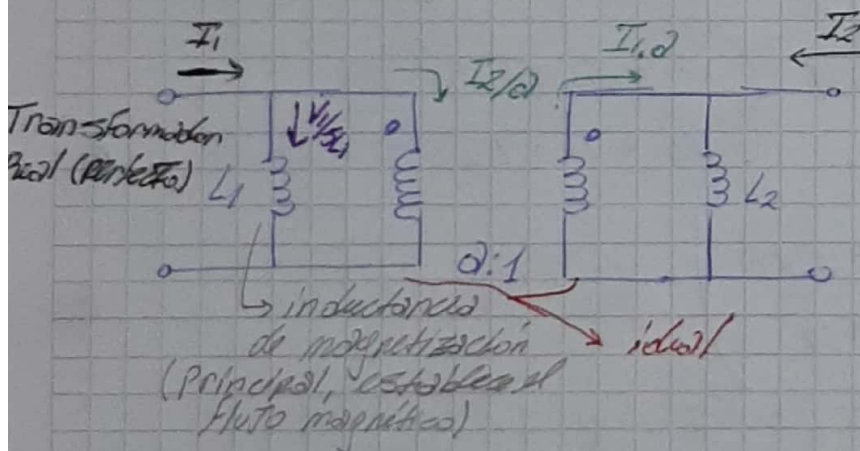 I₁
I₂/a
I₁.a
I₂
V₁/SL₁
Transformador
Real (perfecto)
L₁
L₂
a:1
inductancia
de magnetización
(Principal, establece el
flujo magnético)
ideal